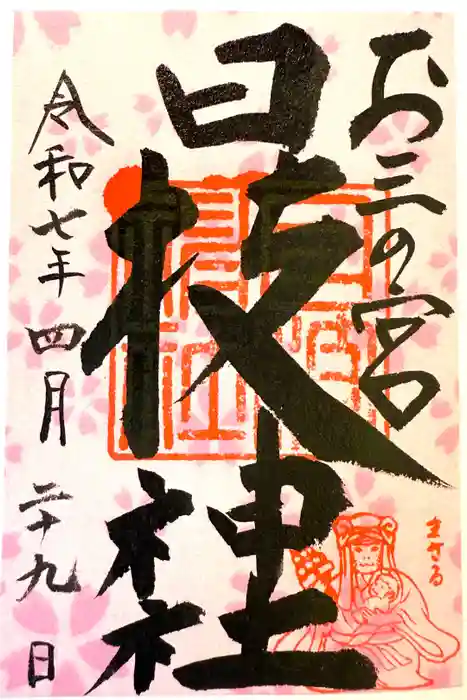 お三の宮
日枝神社
令和七年四月二十九日
まさる